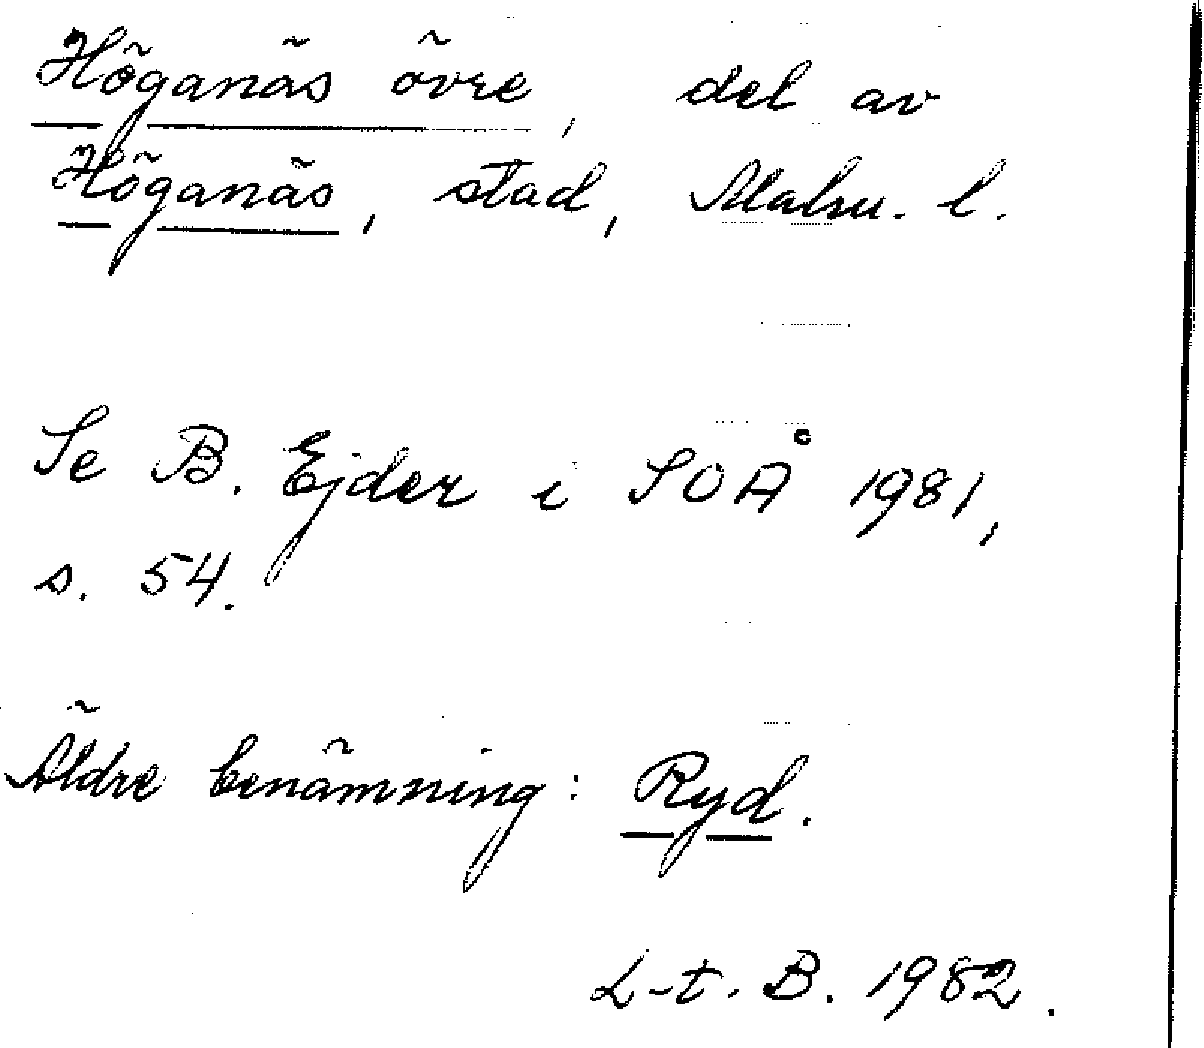 Höganäs övre, del av
Höganäs, stad, Malm. l.
Se B. Ejder i SOÅ 1981,
s. 54.
Äldre benämning: Ryd.
L-t. B. 1982.